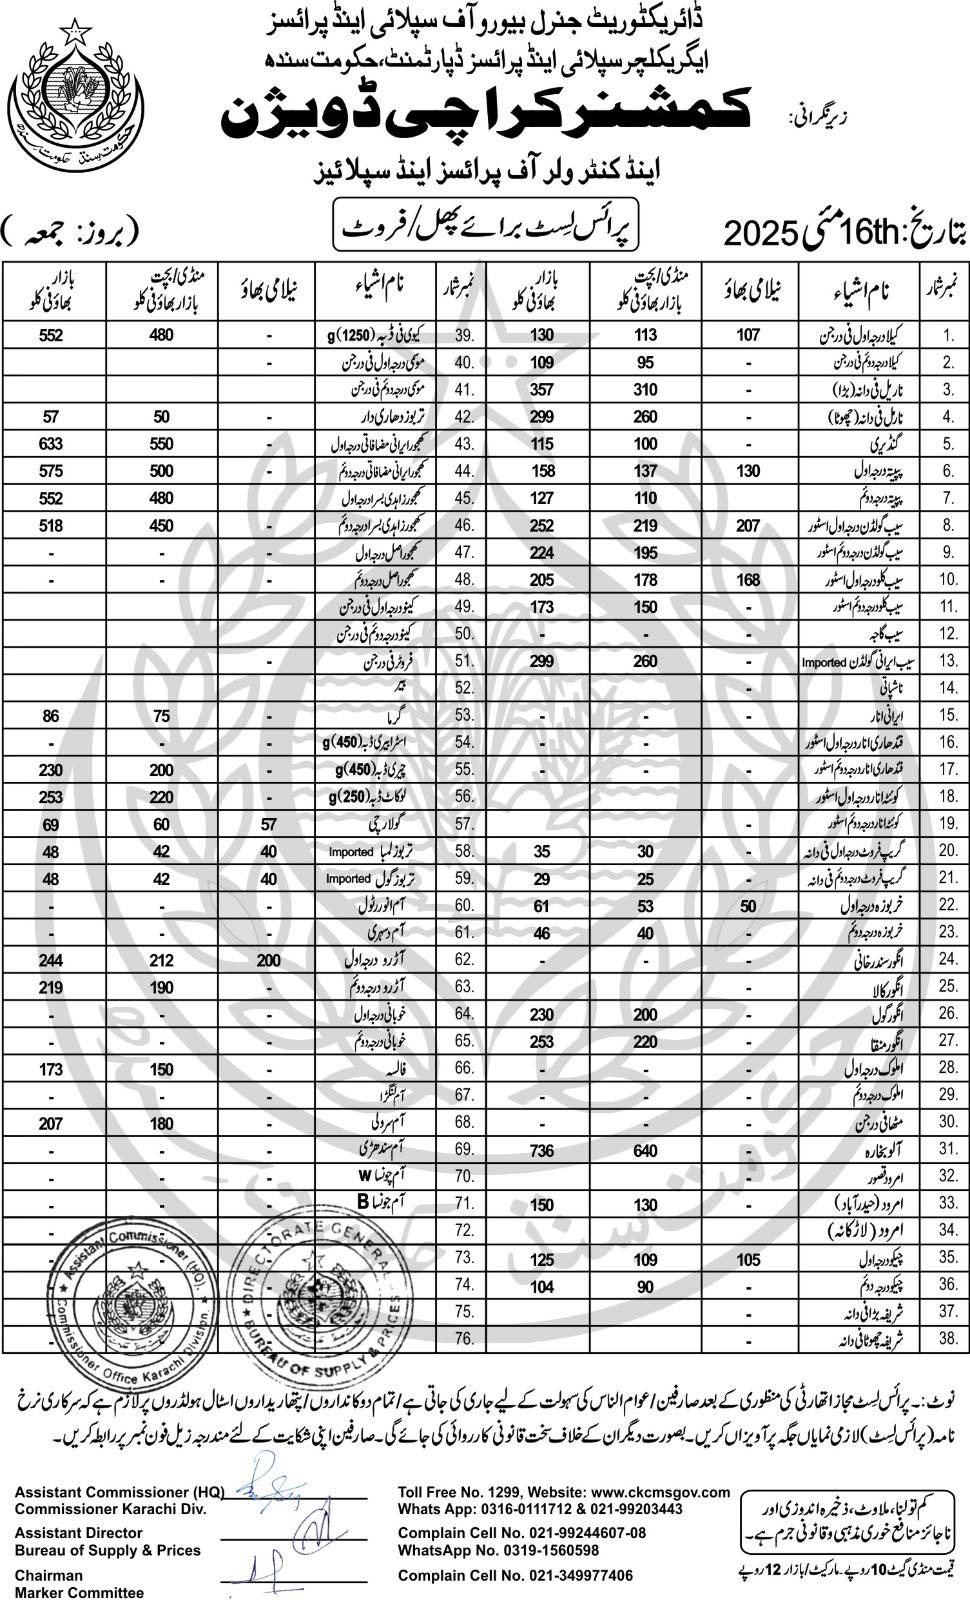 ڈائریکٹوریٹ جنرل بیورو آف سپلائی اینڈ پرائسز
ایگریکلچر سپلائی اینڈ پرائسز ڈپارٹمنٹ، حکومت سندھ
زیر نگرانی: کمشنر کراچی ڈویژن
اینڈ کنٹرولر آف پرائسز اینڈ سپلائیز
بتاریخ: 16th مئی 2025 پرائس لسٹ برائے پھل/فروٹ (بروز: جمعہ)
نمبر شمار نام اشیاء نیلامی بھاؤ منڈی/بچت بازار بھاؤ فی کلو بازار بھاؤ فی کلو نمبر شمار نام اشیاء نیلامی بھاؤ منڈی/بچت بازار بھاؤ فی کلو بازار بھاؤ فی کلو
1. کیلا درجہ اول فی درجن 107 113 130 39. کیوی فی ڈبہ (1250)g - 480 552
2. کیلا درجہ دوئم فی درجن - 95 109 40. موسمی درجہ اول فی درجن -
3. ناریل فی دانہ (بڑا) - 310 357 41. موسمی درجہ دوئم فی درجن
4. ناریل فی دانہ (چھوٹا) - 260 299 42. تربوز دھاری دار - 50 57
5. گنڈیری - 100 115 43. کھجور ایرانی مضافاتی درجہ اول - 550 633
6. پپیتہ درجہ اول 130 137 158 44. کھجور ایرانی مضافاتی درجہ دوئم - 500 575
7. پپیتہ درجہ دوئم - 110 127 45. کھجور زاہدی بسرا درجہ اول - 480 552
8. سیب گولڈن درجہ اول اسٹور 207 219 252 46. کھجور زاہدی بسرا درجہ دوئم - 450 518
9. سیب گولڈن درجہ دوئم اسٹور - 195 224 47. کھجور اصل درجہ اول - - -
10. سیب کلو درجہ اول اسٹور 168 178 205 48. کھجور اصل درجہ دوئم - - -
11. سیب کلو درجہ دوئم اسٹور - 150 173 49. کینو درجہ اول فی درجن -
12. سیب گاجہ - - - 50. کینو درجہ دوئم فی درجن -
13. سیب ایرانی گولڈن Imported - 260 299 51. فروٹر فی درجن -
14. ناشپاتی - 52. بیر
15. ایرانی انار - - - 53. گرما - 75 86
16. قندھاری انار درجہ اول اسٹور - - - 54. اسٹرابیری ڈبہ (450)g - - -
17. قندھاری انار درجہ دوئم اسٹور - - - 55. چیری ڈبہ (450)g - 200 230
18. کوئٹہ انار درجہ اول اسٹور - 56. لوکاٹ ڈبہ (250)g - 220 253
19. کوئٹہ انار درجہ دوئم اسٹور - 57. گولارچی 57 60 69
20. گریپ فروٹ درجہ اول فی دانہ - 30 35 58. تربوز لمبا Imported 40 42 48
21. گریپ فروٹ درجہ دوئم فی دانہ - 25 29 59. تربوز گول Imported 40 42 48
22. خربوزہ درجہ اول 50 53 61 60. آم انور رٹول - - -
23. خربوزہ درجہ دوئم - 40 46 61. آم دسہری - - -
24. انگور سندر خانی - - - 62. آڑو درجہ اول 200 212 244
25. انگور کالا 63. آڑو درجہ دوئم - 190 219
26. انگور گول - 200 230 64. خوبانی درجہ اول - - -
27. انگور منقا - 220 253 65. خوبانی درجہ دوئم - - -
28. املوک درجہ اول - - - 66. فالسہ - 150 173
29. املوک درجہ دوئم 67. آم لنگڑا - - -
30. مٹھا فی درجن - - - 68. آم سرولی - 180 207
31. آلو بخارہ - 640 736 69. آم سندھڑی - - -
32. امرود قصور - 70. آم چونسا W - - -
33. امرود (حیدرآباد) - 130 150 71. آم چونسا B - - -
34. امرود (لاڑکانہ) 72. - -
35. چیکو درجہ اول 105 109 125 73. -
36. چیکو درجہ دوئم - 90 104 74.
37. شریفہ بڑا فی دانہ - 75.
38. شریفہ چھوٹا فی دانہ - 76.
Assistant Commissioner (HQ)
Commissioner Office Karachi Division
DIRECTORATE GENERAL
BUREAU OF SUPPLY & PRICES
نوٹ:۔ پرائس لسٹ مجاز اتھارٹی کی منظوری کے بعد صارفین/عوام الناس کی سہولت کے لیے جاری کی جاتی ہے/تمام دوکانداروں/پتھاریداروں اسٹال ہولڈروں پر لازم ہے کہ سرکاری نرخ
نامہ (پرائس لسٹ) لازمی نمایاں جگہ پر آویزاں کریں۔ بصورت دیگر ان کے خلاف سخت قانونی کارروائی کی جائے گی۔ صارفین اپنی شکایت کے لئے مندرجہ زیل فون نمبر پر رابطہ کریں۔
Assistant Commissioner (HQ)
Commissioner Karachi Div.
Assistant Director
Bureau of Supply & Prices
Chairman
Marker Committee
Toll Free No. 1299, Website: www.ckcmsgov.com
Whats App: 0316-0111712 & 021-99203443
Complain Cell No. 021-99244607-08
WhatsApp No. 0319-1560598
Complain Cell No. 021-349977406
کم تولنا، ملاوٹ، ذخیرہ اندوزی اور
ناجائز منافع خوری مذہبی و قانونی جرم ہے۔
قیمت منڈی گیٹ 10 روپے۔ مارکیٹ/بازار 12 روپے